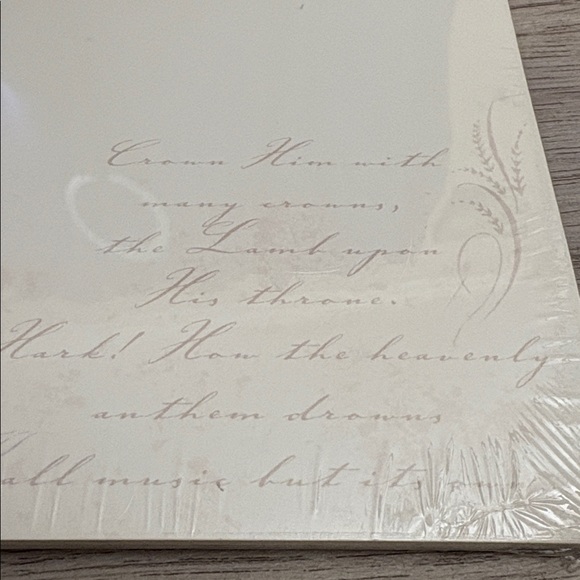 Crown Him with
many crowns,
the Lamb upon
His throne.
Hark! How the heavenly
anthem drowns
all music but its own